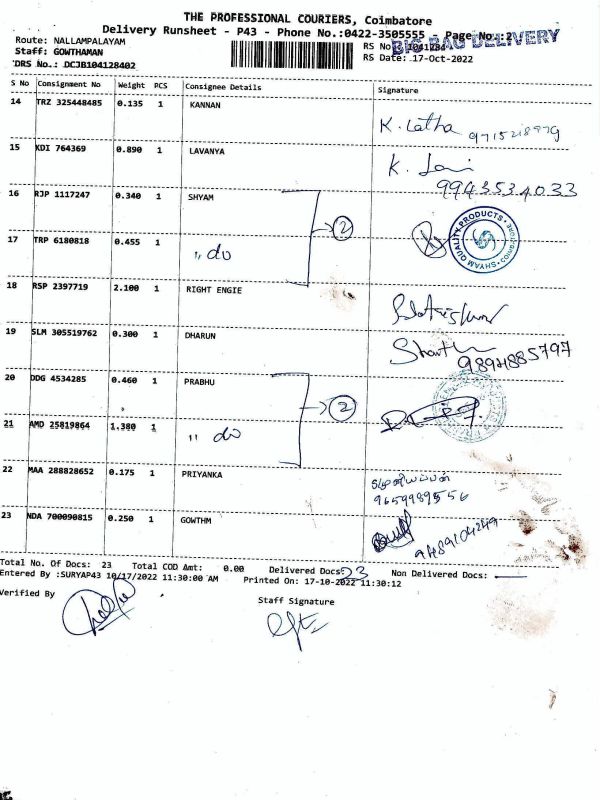 THE PROFESSIONAL COURIERS, Coimbatore
Delivery Runsheet - P43 - Phone No.:0422-3505555 - Page No.:2
BIG BAG DELIVERY
Route: NALLAMPALAYAM
RS No.: 1041284
Staff: GOWTHAMAN
RS Date: 17-Oct-2022
DRS No.: DCJB104128402
S No Consignment No Weight PCS Consignee Details Signature
14 TRZ 325448485 0.135 1 KANNAN K. Latha
15 KDI 764369 0.890 1 LAVANYA K.
9943534033
16 RJP 1117247 0.340 1 SHYAM
2
SHYAM QUALITY PRODUCTS COIMBATORE
17 TRP 6180818 0.455 1 ,, do
18 RSP 2397719 2.100 1 RIGHT ENGIE
19 SLM 305519762 0.300 1 DHARUN
9894885797
20 DDG 4534285 0.460 1 PRABHU
2
21 AMD 25819864 1.380 1 ,, do
22 MAA 288828652 0.175 1 PRIYANKA
9659989556
23 NDA 700090815 0.250 1 GOWTHM
9489104249
Total No. Of Docs: 23 Total COD Amt: 0.00 Delivered Docs: 23 Non Delivered Docs: —
Entered By :SURYAP43 10/17/2022 11:30:00 AM Printed On: 17-10-2022 11:30:12
Verified By
Staff Signature